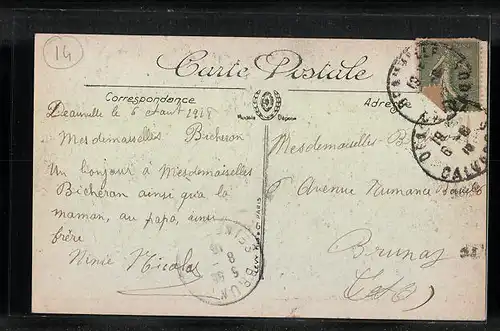 14
Carte Postale
Correspondance
Adre
Modèle Déposé
Deauville le 6 Aout 1918
Mesdemaiselles Bicheron
Un bonjour à Mesdemaiselles
Bicheron ainsi qu'à la
maman, au papa,
frère
Ninie Nicolas
Mesdemaiselles B
Avenue Numance
Brunoy
S & O
PARIS
CALV